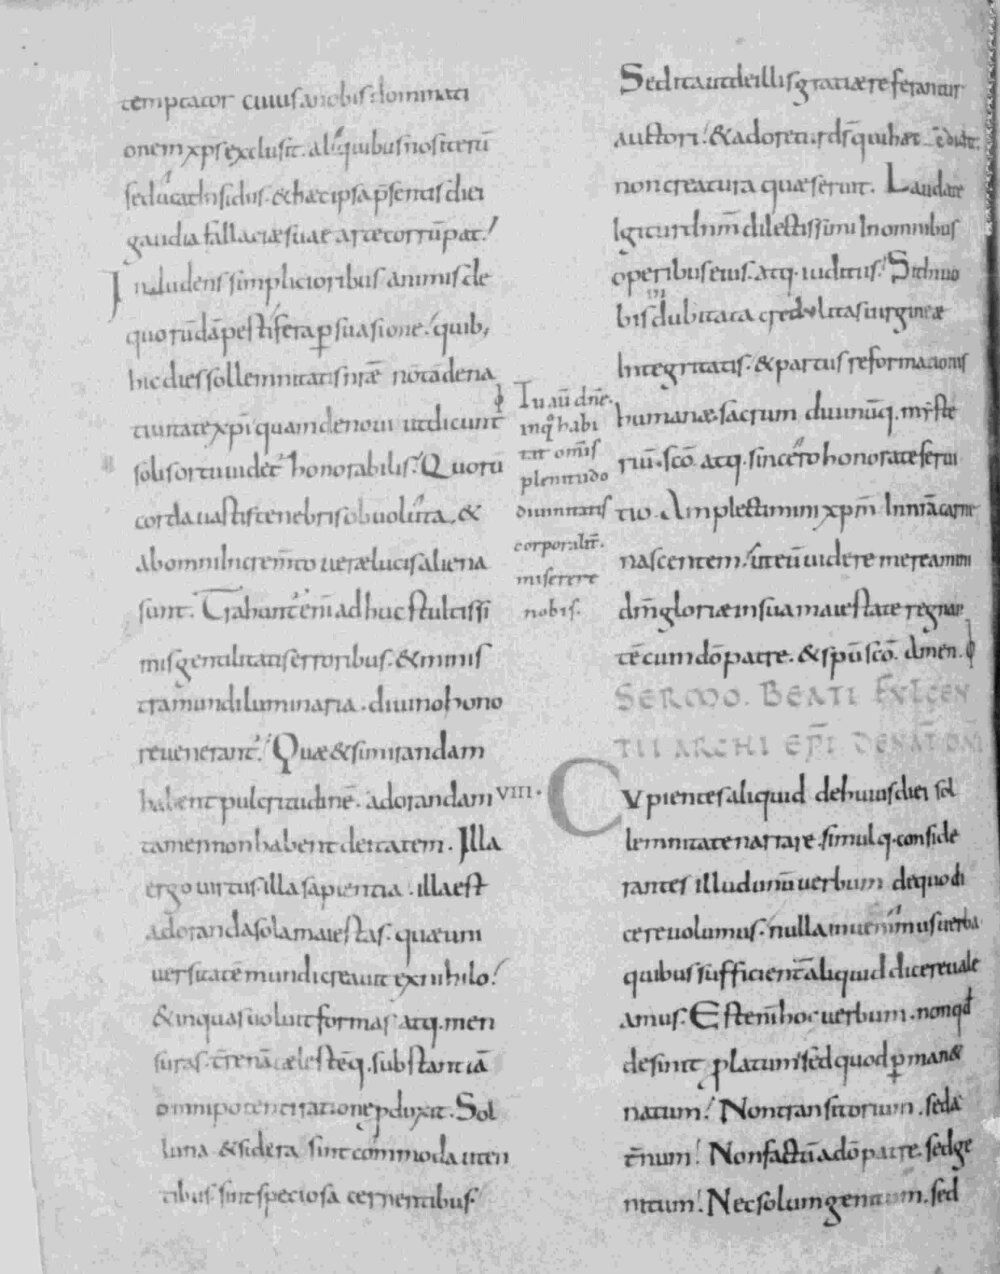 temptator cuius a nobis dominati
onem xp̄s exclusit. aliquibus nos iterū
seducat insidiis. & haec ipsa p̄sentis diei
gaudia fallaciae suae arte corrūpat.
Inludens simplicioribus animis de
quorūdā pestifera persuasione. quib;
hic dies sollemnitatis nr̄ae nō tā de na
tiuitate xp̄i quam de noui ut dicunt
solis ortu uidet̄ honorabilis. Quorū
corda uastis tenebris obuoluta. &
ab omni increm̄to uerae lucis aliena
sunt. Trahunt̄ eni ad huc stultissi
mis gentilitatis erroribus. & minis
tra mundi luminaria. diuino hono
re uenerant̄. Quae & si mirandam
habent pulcritudinē. adorandam
tamen non habent deitatem. Illa
ergo uirtus. illa sapientia. illa est
adoranda sola maiestas. quae uni
uersitatē mundi creauit ex nihilo.
& in quas uoluit formas atq. men
suras. t̄renā caelestēq. substantiā
omnipotenti ratione produxit. Sol
luna & sidera sint commoda uten
tibus. sint speciosa cernentibus.
Tu aū dn̄e.
in q̊ habi
tat om̄is
plenitudo
diuinitatis
corporalit̄.
miserere
nobis.
Sed ita ut de illis gratiae referantur
auctori. & adoretur d̄s qui haec
non creatura quae seruit. Laudate
Igitur dn̄m dilectissimi In omnibus
operibus eius. atq. iudiciis. Sit in uo
bis indubitata credulitas uirgineae
Integritatis. & partus reformationis
humanae. sacrum diuinūq. myste
riū. sc̄o. atq. sincero honorate serui
tio. Amplectimini xpm̄ In nr̄a carne
nascentem. ut eū uidere mereamini
dm̄ gloriae in sua maiestate regnan
tē cum dō patre. & sp̄u sc̄o. Amen.
SERMO. BEATI FULGEN
TII ARCHI EPĪ DE NAT DNĪ
VIII. CVpientes aliquid de huius diei sol
lemnitate narrare. simulq. conside
rantes illud unū uerbum de quo di
cere uolumus. nulla inuenimus uerba
quibus sufficienter aliquid dicere uale
amus. Est eni hoc uerbum. non qd̄
desinit prolatum. sed quod perman&
natum. Non transitorium. sed ae
t̄num. Non factū a dō patre. sed ge
nitum. Nec solum genitum. sed